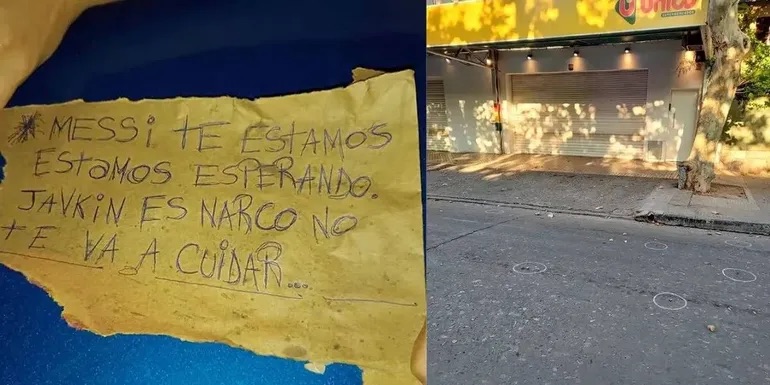 *MESSI TE ESTAMOS
ESTAMOS ESPERANDO.
JAVKIN ES NARCO NO
TE VA A CUIDAR...
UNICO
SUPERMERCADOS